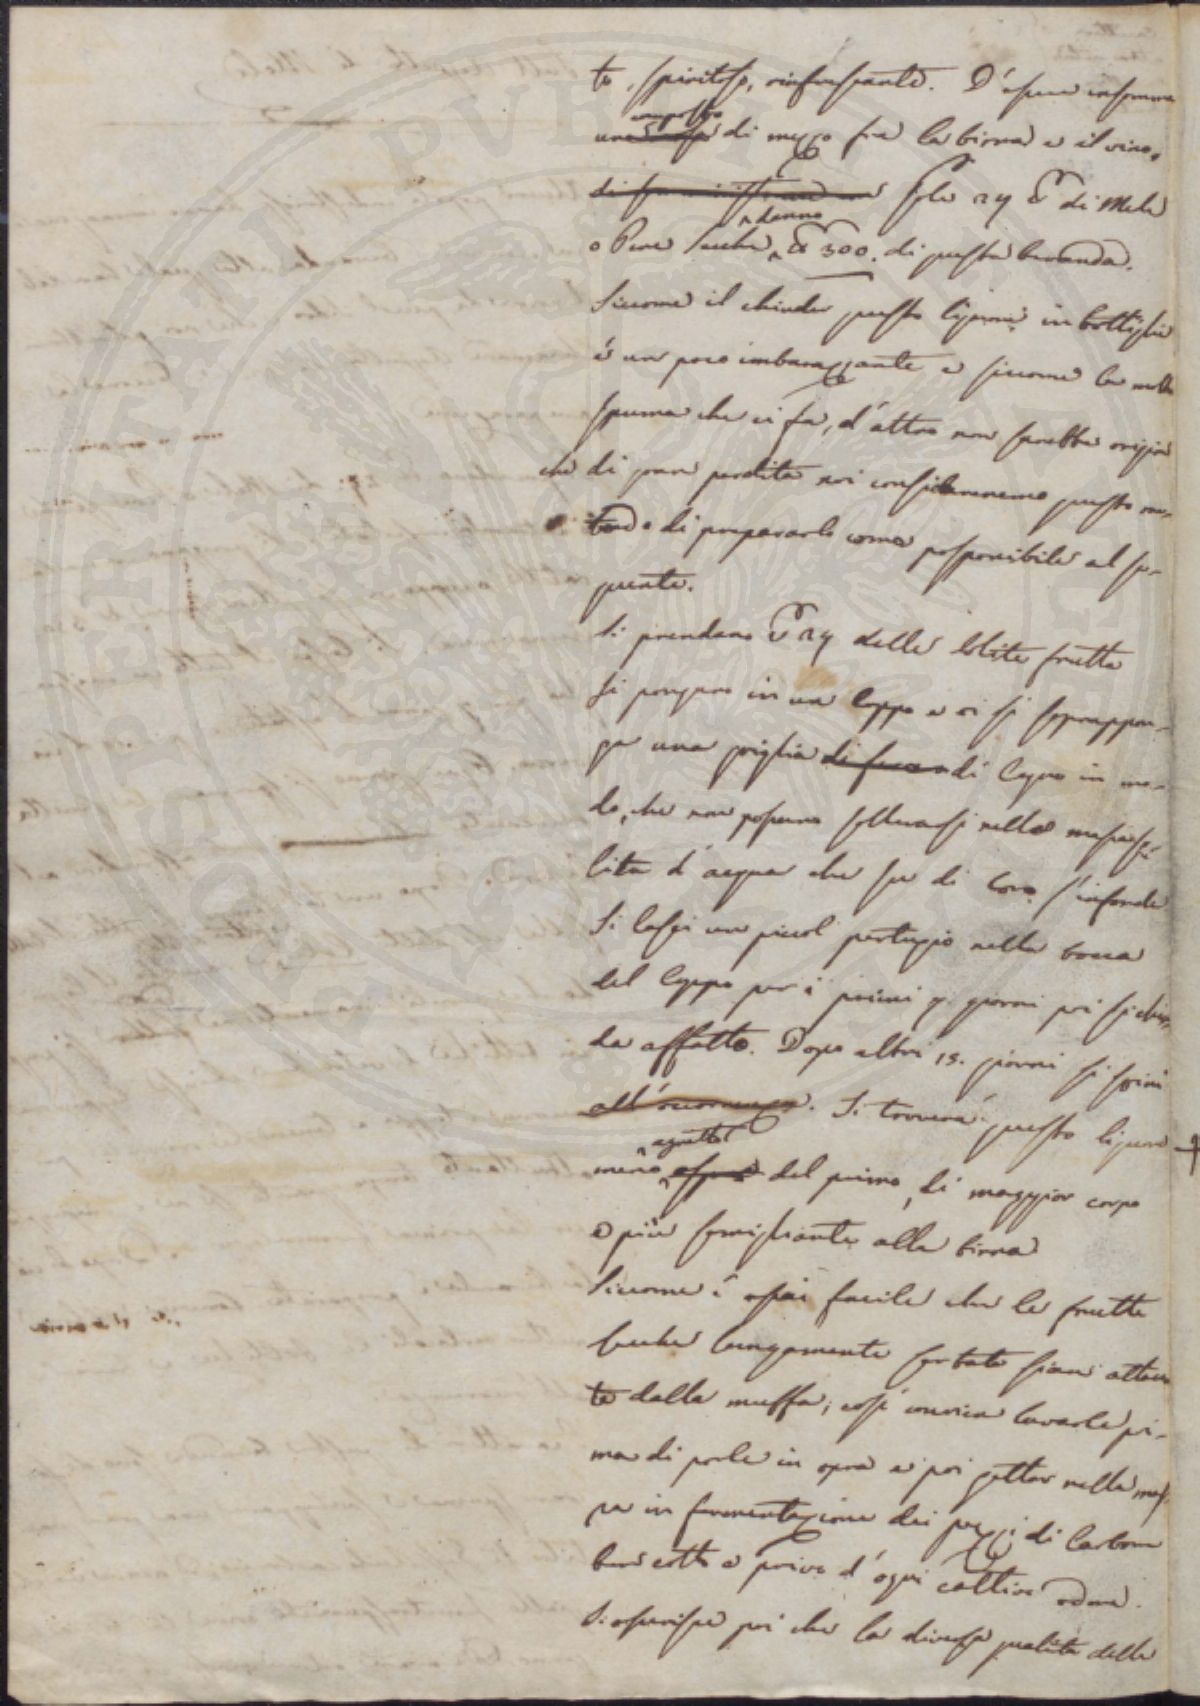 to, spiritoso, rinfrescante. D'essere insomma
composto
una cosa di mezzo fra la birra e il vino.
Sole 24 ℔ di Mele
danno
o Pere secche ℔ 300. di questa bevanda.
Siccome il chiuder questo liquore in bottiglie
è un poco imbarazzante e siccome la molta
spuma che vi fa, d'altro non sarebbe origin
che di gran perdita noi considereremo questo me-
todo di prepararlo come posponibile al se-
guente.
Si prendano ℔ 24 delle solite frutta
si pongano in un Ceppo e vi si sovrappon-
ga una griglia di legno in mo-
do, che non possano sollevarsi nella massa so-
lita d'acqua che su di loro s'infonde
Si lasci un piccol pertugio nella bocca
del Ceppo per i primi 9 giorni poi si chiu-
da affatto. Dopo altri 15. giorni si spini
all'occorrenza. Si troverà questo liquore
agretto
meno aspro del primo, di maggior corpo
e più somigliante alla birra
Siccome è assai facile che le frutta
secche lungamente serbate siano attacca
te dalla muffa; così convien lavarle pri-
ma di porle in opra e poi gettar nella mas-
sa in fermentazione dei pezzi di Carbone
ben cotto e privo d'ogni cattivo odore.
Si asserisce poi che la diversa qualità delle